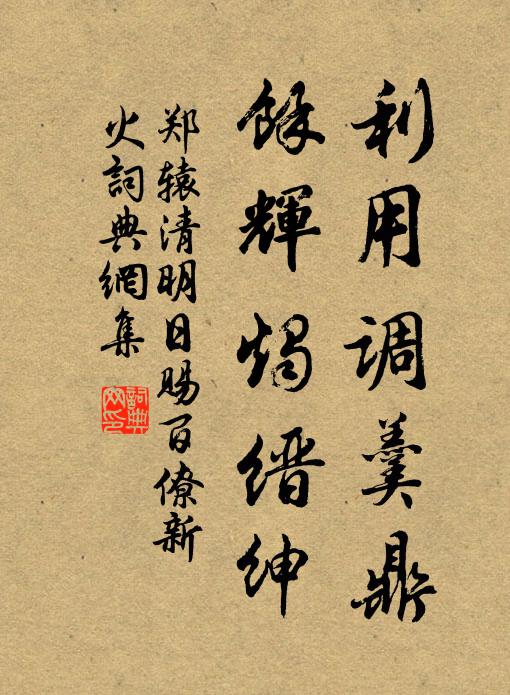 利用调羹鼎
馀輝燭缙绅
郑辕清明日赐百僚新
火詞典網集
詞典网印